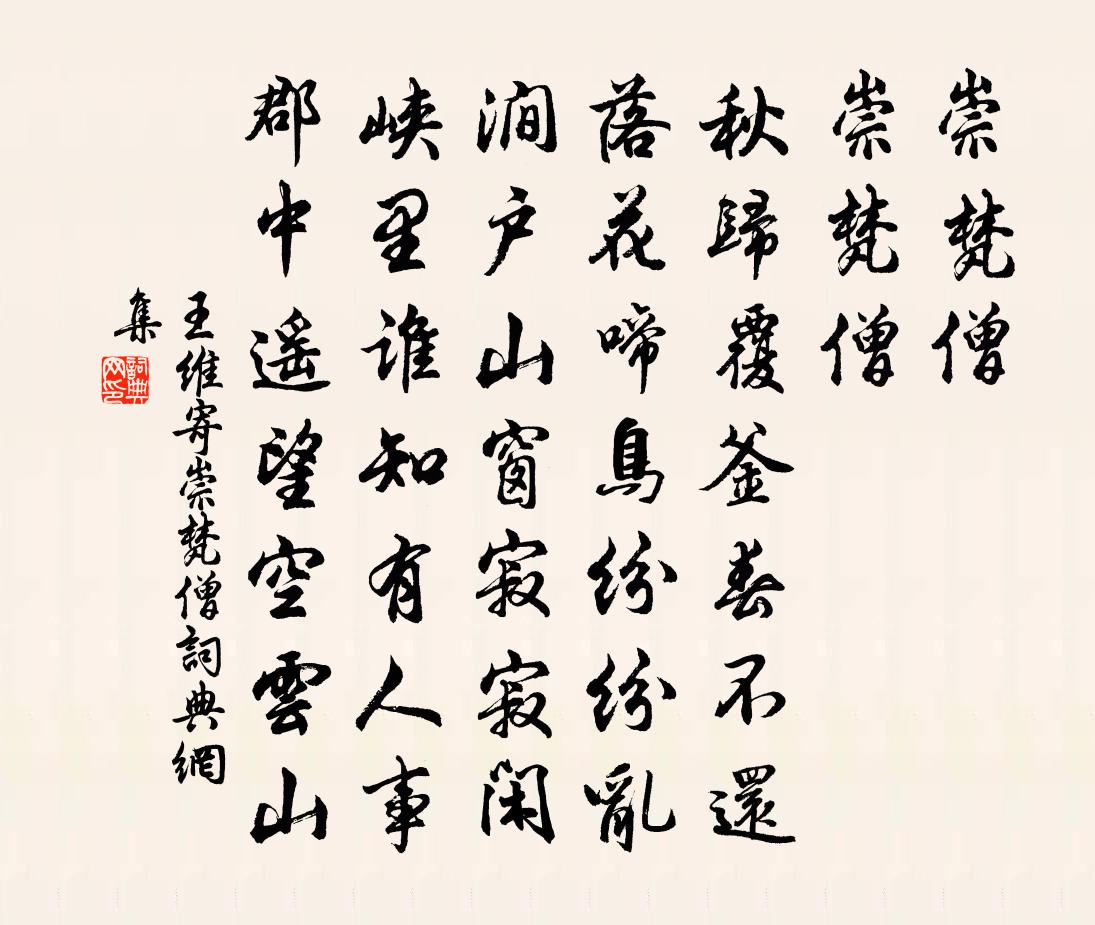 崇梵僧
崇梵僧
秋歸覆釜春不還
落花啼鳥紛紛亂
澗户山窗寂寂閑
峽里誰知有人事
郡中遥望空雲山
王維寄崇梵僧詞典網
集
詞典网印